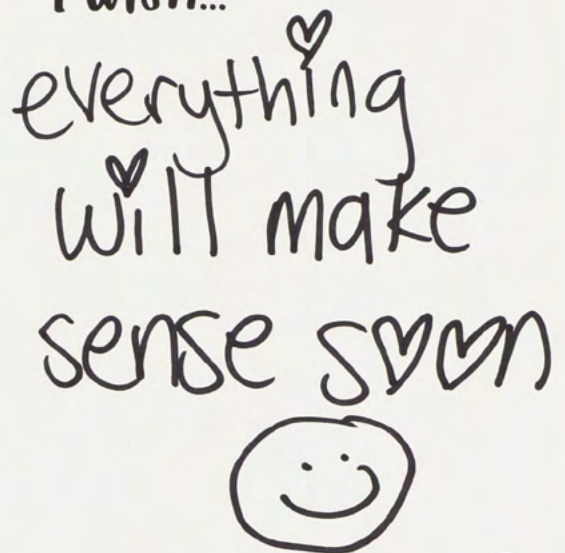 I wish...
everything
will make
sense soon